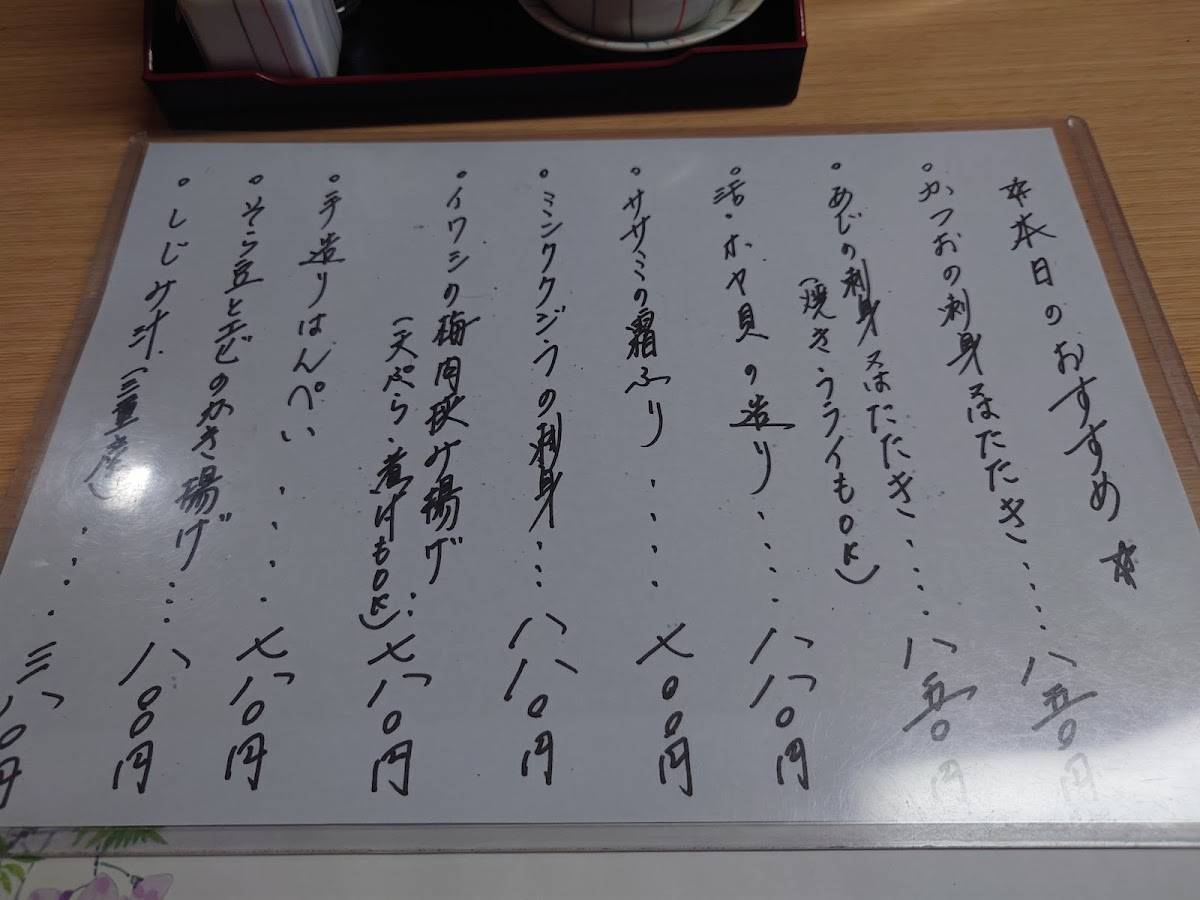 ☆本日のおすすめ☆
・かつおの刺身又はたたき・・・・八五〇円
・あじの刺身又はたたき・・・・八五〇円
(焼き・フライもOK)
・活・ホヤ貝の造り・・・・八八〇円
・ササミの霜ふり・・・・七〇〇円
・ミンククジラの刺身・・・八八〇円
・イワシの梅肉挟み揚げ・・七八〇円
(天ぷら・煮付もOK)
・手造りはんぺい・・・・七八〇円
・そら豆とエビのかき揚げ・・・八〇〇円
・しじみ汁(三重産)・・・・三八〇円